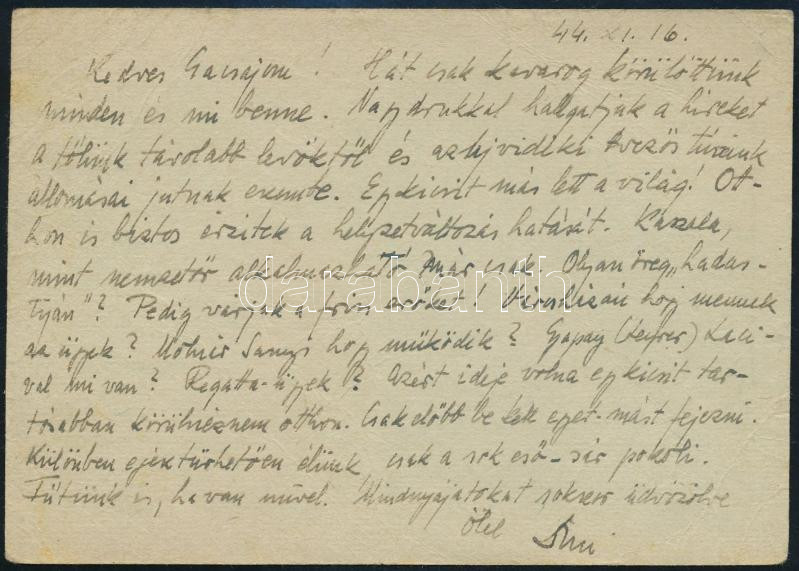 44. XI. 16.
Kedves Gacsájom! Hát csak kavarog körülöttünk
minden és mi benne. Nagy drukkal hallgatjuk a híreket
a tőlünk távolabb levőktől és az újvidéki tüzeink
állomásai jutnak eszembe. Egy kicsit más lett a világ! Ott-
hon is biztos érzitek a helyzetváltozás hatását. Kaszala,
mint nemzetőr alkalmazható már csak. Olyan öreg „hadas-
tyán"? Pedig várják a friss erőket! Városházán hogy mennek
az ügyek? Molnár Sanyi hogy működik? Gyapay (Leyrer) Laci-
val mi van? Regatta-ügyek? Azért ideje volna egy kicsit tar-
tósabban körülnéznem otthon. Csak előbb be kell egyet-mást fejezni.
Különben egész tűrhetően élünk, csak a sok eső-sár pokoli.
Fűtünk is, ha van mivel. Mindnyájatokat sokszor üdvözölve
ölel
darabanth